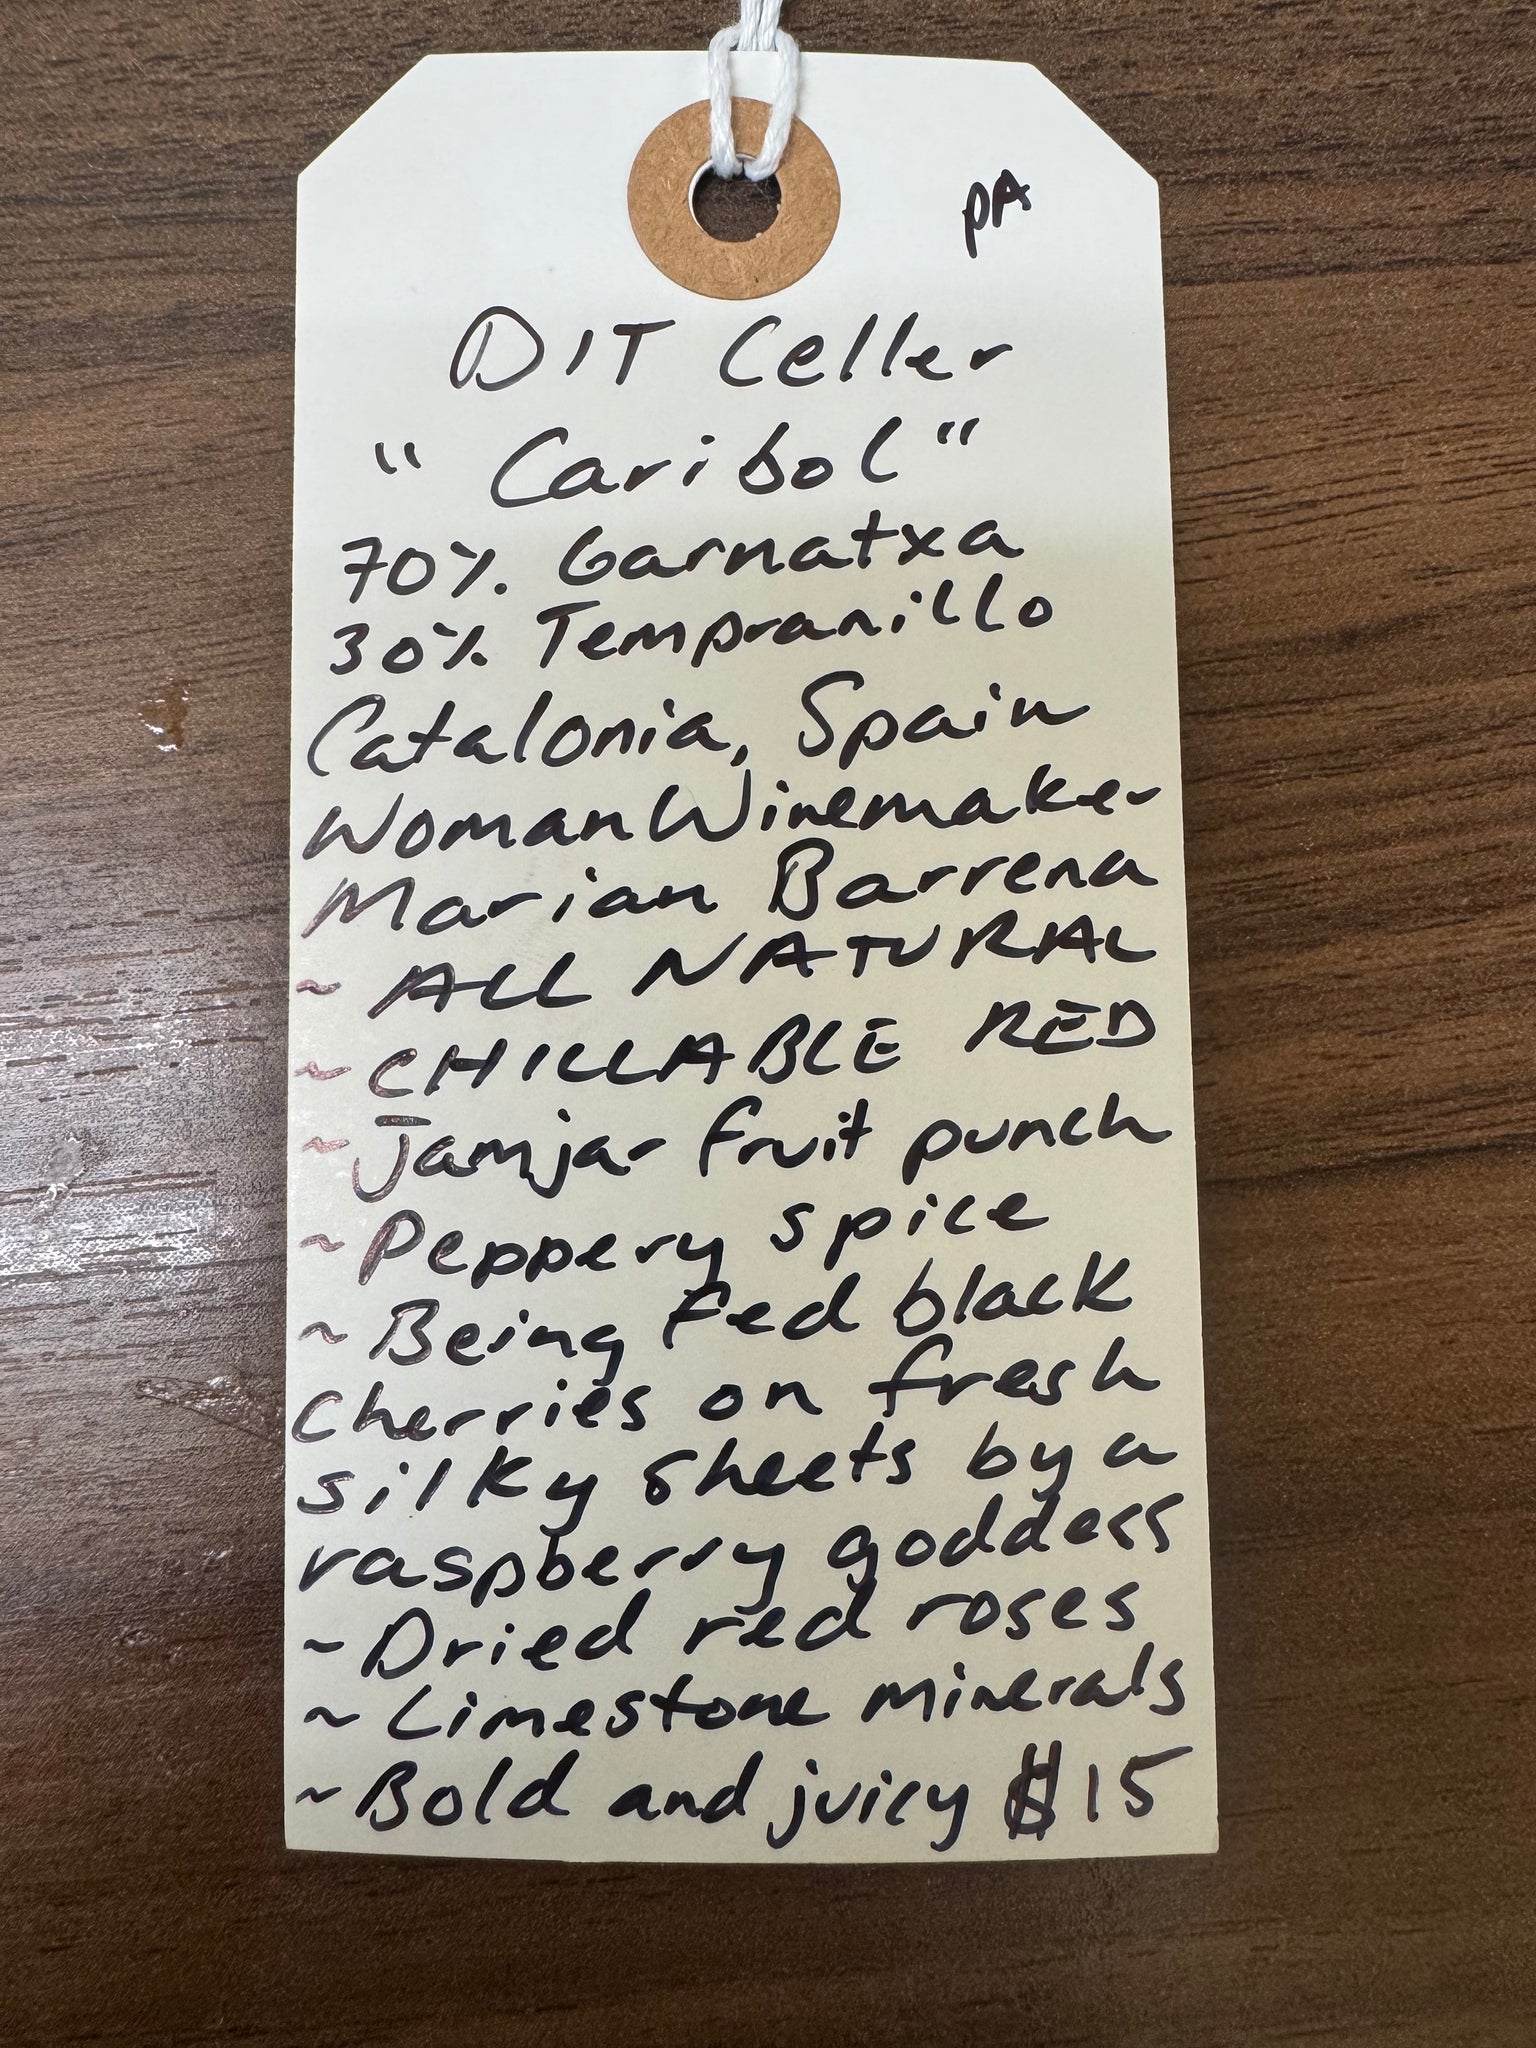 pA
DIT Celler
"Caribol"
70% Garnatxa
30% Tempranillo
Catalonia, Spain
Woman Winemaker
Marian Barrena
~ ALL NATURAL
~ CHILLABLE RED
~ Jamjar fruit punch
~ Peppery spice
~ Being fed black
cherries on fresh
silky sheets by a
raspberry goddess
~ Dried red roses
~ Limestone minerals
~ Bold and juicy $15